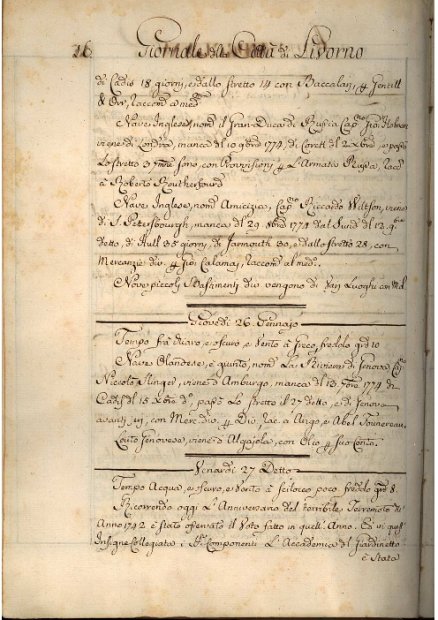 26. Giornale della Città di Livorno
di Cadis 18 giorni, e dallo stretto 14 con Baccalari, Gentill
& Orr, raccom. al med.
Nave Inglese, nom. il Gran Duca di Russia Cap. Gio.
viene di Londra, manca dl 10 9bre 1774, di dl 2 Xbre, e passò
Lo stretto 3 sono, con Provvisioni p l'Armata Russa, racc
a Roberto Routherfourd
Nave Inglese, nom. Amicizia, Cap. Riccardo Wiltson, viene
di S. Petersbourgh, manca dl 29 8bre 1774 dal Sund dl 12.
detto, di Hull 35 giorni, di Jarmouth 30, e dallo stretto 28, con
Mercanzie div. p Gio: Calamaj, raccom. al med.
Nove piccoli Bastimenti div. vengono di varj Luoghi con
Giovedì 26. Gennajo
Tempo fra chiaro, e oscuro, e Vento à Greco, freddo grd 10
Nave Olandese, è giunta, nom. La Riviera di Genova Cap
Niccolò viene d'Amburgo, manca dl 1774 di
Cadis dl 15 Xbre d., passò Lo stretto il 27 detto, e di Genova
avanti jeri, con Merc. div. p Div., rac. a Argo, e Abel
Leuto Genovese, viene d'Algajola, con Olio p suo Conto.
Venardì 27 Detto
Tempo Acqua, e oscuro, e Vento à scilocco poco freddo grd 8.
Ricorrendo oggi L'Anniversario del terribile Terremoto di
Anno 1742 è stato osservato il Voto fatto in quell'Anno. E in quest
Insigne Collegiata i Componenti L'Accademia dl Giardinetto
è stata